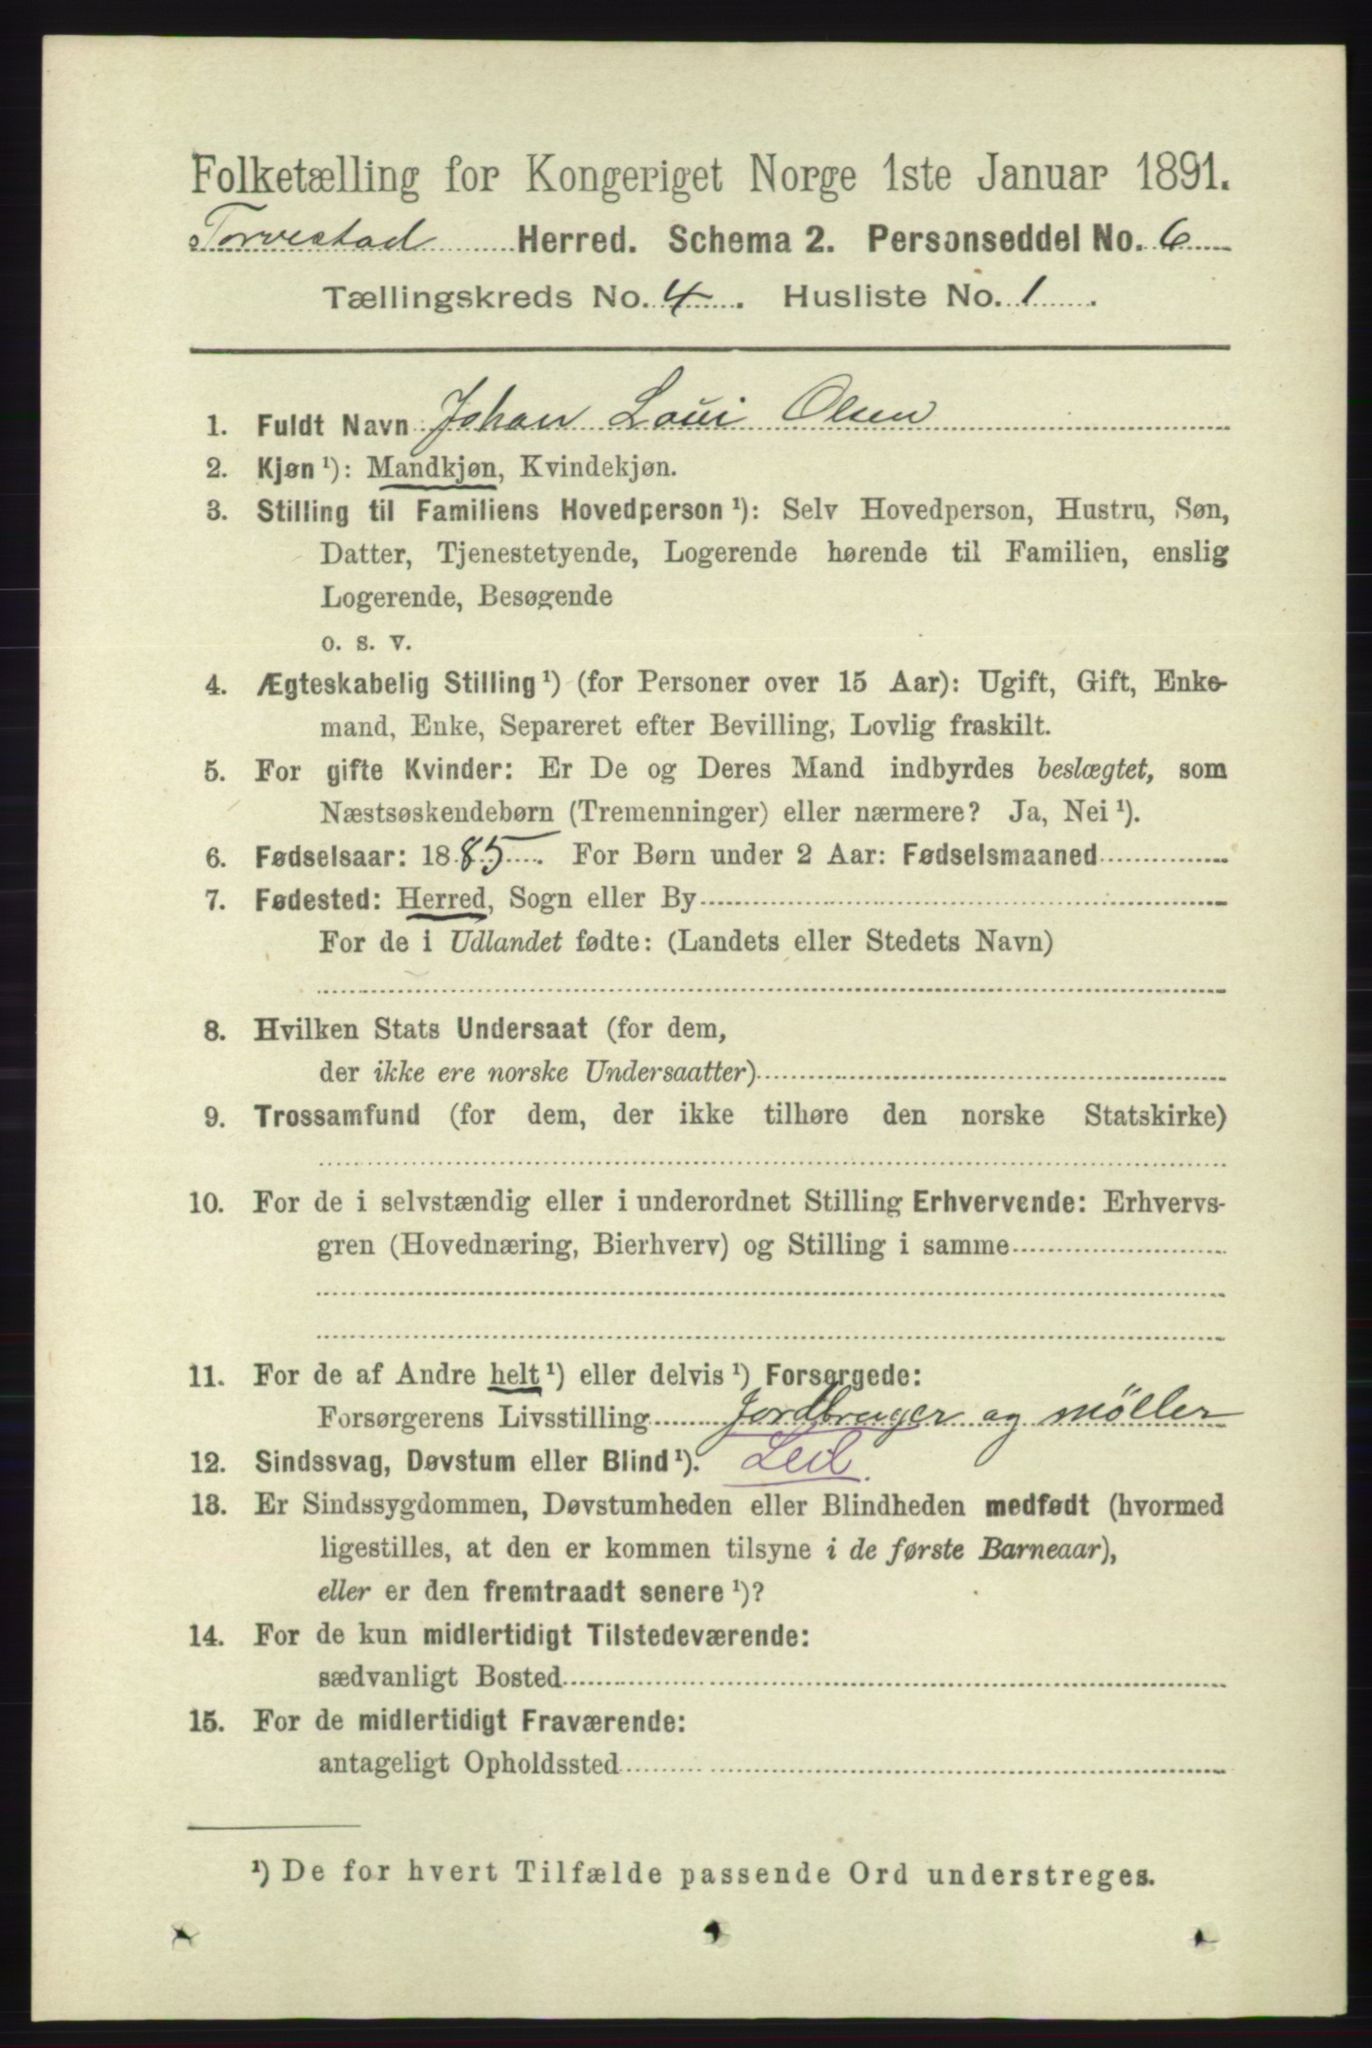 Folketælling for Kongeriget Norge 1ste Januar 1891.
Torvestad Herred. Schema 2. Personseddel No. 6
Tællingskreds No. 4. Husliste No. 1.
1. Fuldt Navn Johan Loui Olsen
2. Kjøn ¹): Mandkjøn, Kvindekjøn.
3. Stilling til Familiens Hovedperson ¹): Selv Hovedperson, Hustru, Søn,
Datter, Tjenestetyende, Logerende hørende til Familien, enslig
Logerende, Besøgende
o. s. v.
4. Ægteskabelig Stilling ¹) (for Personer over 15 Aar): Ugift, Gift, Enke-
mand, Enke, Separeret efter Bevilling, Lovlig fraskilt.
5. For gifte Kvinder: Er De og Deres Mand indbyrdes beslægtet, som
Næstsøskendebørn (Tremenninger) eller nærmere? Ja, Nei ¹).
6. Fødselsaar: 1885. For Børn under 2 Aar: Fødselsmaaned
7. Fødested: Herred, Sogn eller By
For de i Udlandet fødte: (Landets eller Stedets Navn)
8. Hvilken Stats Undersaat (for dem,
der ikke ere norske Undersaatter)
9. Trossamfund (for dem, der ikke tilhøre den norske Statskirke)
10. For de i selvstændig eller i underordnet Stilling Erhvervende: Erhvervs-
gren (Hovednæring, Bierhverv) og Stilling i samme
11. For de af Andre helt ¹) eller delvis ¹) Forsørgede:
Forsørgerens Livsstilling Jordbruger og möller
12. Sindssvag, Døvstum eller Blind ¹). Leil.
13. Er Sindssygdommen, Døvstumheden eller Blindheden medfødt (hvormed
ligestilles, at den er kommen tilsyne i de første Barneaar),
eller er den fremtraadt senere ¹)?
14. For de kun midlertidigt Tilstedeværende:
sædvanligt Bosted
15. For de midlertidigt Fraværende:
antageligt Opholdssted
¹) De for hvert Tilfælde passende Ord understreges.